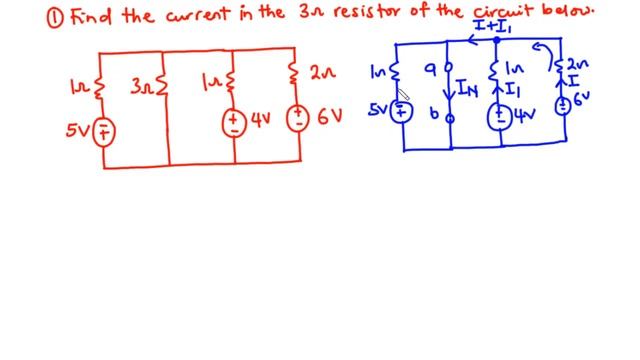 ① Find the current in the 3Ω resistor of the circuit below.
I+I₁
1Ω 3Ω 1Ω 2Ω
1Ω a 1Ω 2Ω
I_N I₁ I
5V 4V 6V
5V b 4V 6V